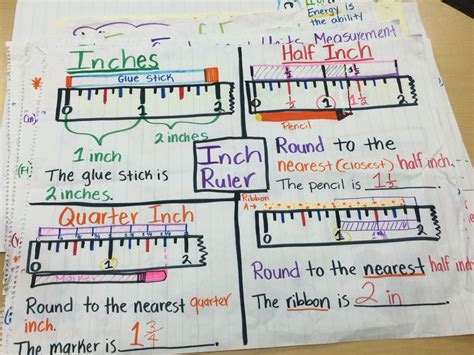 Energy is
the ability
Units Measurement
Inches
Glue stick
0 1 2
1 inch
2 inches
The glue stick is
2 inches.
Half Inch
½ 1½
0 1 2
Pencil
Round to the
nearest (closest) half inch.
The pencil is 1½
Inch
Ruler
(in)
(Ft)
Quarter Inch
0 1 2
Marker
Round to the nearest quarter
inch.
The marker is 1¾
Ribbon
A→
0 1 2
Round to the nearest half inch
The ribbon is 2 in.